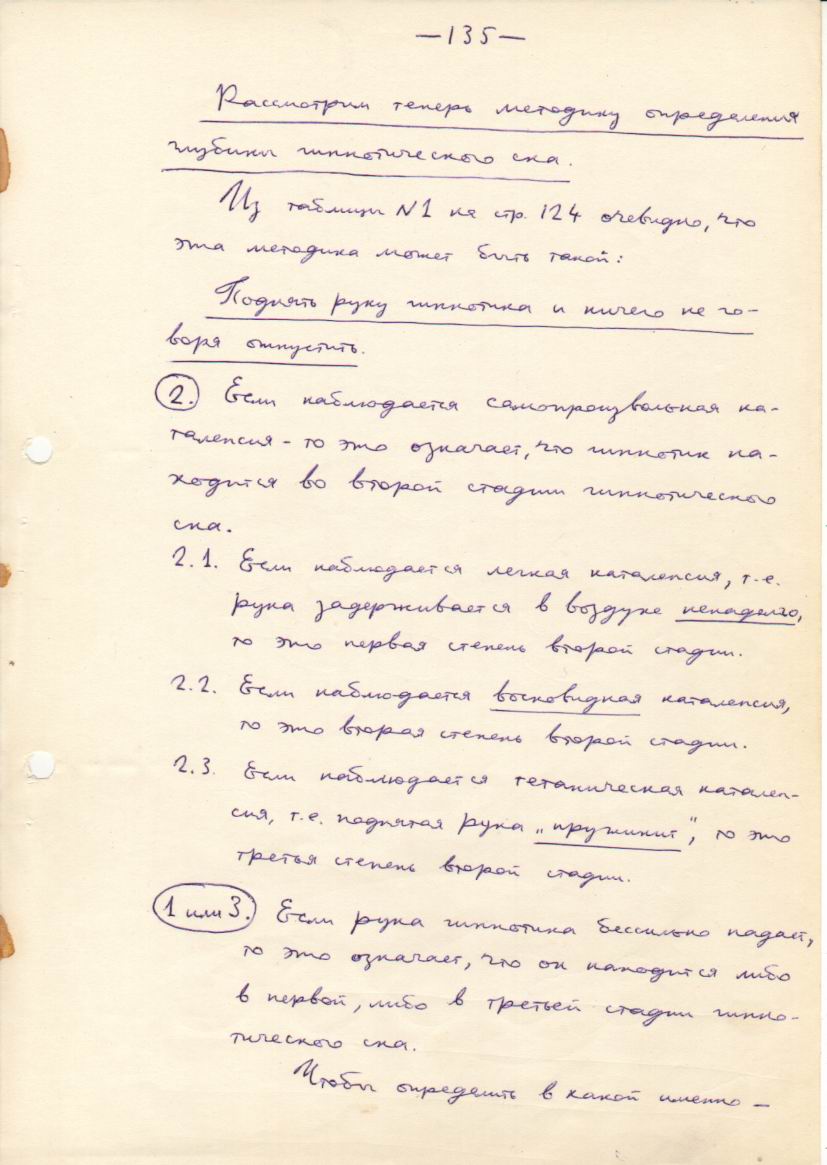 —135—
Рассмотрим теперь методику определения
глубины гипнотического сна.
Из таблицы №1 на стр. 124 очевидно, что
эта методика может быть такой:
Поднять руку гипнотика и ничего не го-
воря отпустить.
2. Если наблюдается самопроизвольная ка-
талепсия - то это означает, что гипнотик на-
ходится во второй стадии гипнотического
сна.
2.1. Если наблюдается легкая каталепсия, т.е.
рука задерживается в воздухе ненадолго,
то это первая степень второй стадии.
2.2. Если наблюдается восковидная каталепсия,
то это вторая степень второй стадии.
2.3. Если наблюдается тетаническая каталеп-
сия, т.е. поднятая рука „пружинит", то это
третья степень второй стадии.
1 или 3. Если рука гипнотика бессильно падает,
то это означает, что он находится либо
в первой, либо в третьей стадии гипно-
тического сна.
Чтобы определить в какой именно —